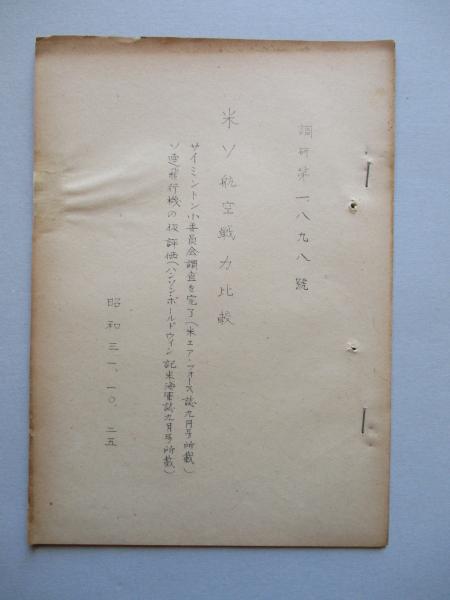 調研第一八九八號
米ソ航空戦力比較
サイミントン小委員会調査を完了(米エア・フォース誌九月号所載)
ソ連飛行機の仮評価(ハンソン・ボールドウィン記米海軍誌九月号所載)
昭和三一、一〇、二五